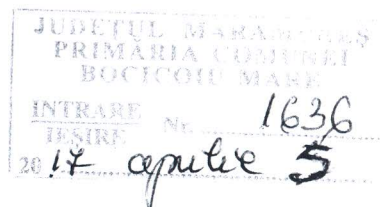 JUDEȚUL MARAMUREȘ
PRIMĂRIA COMUNEI
BOCICOIU MARE
INTRARE
IEȘIRE Nr. 1636
2017 aprilie 5